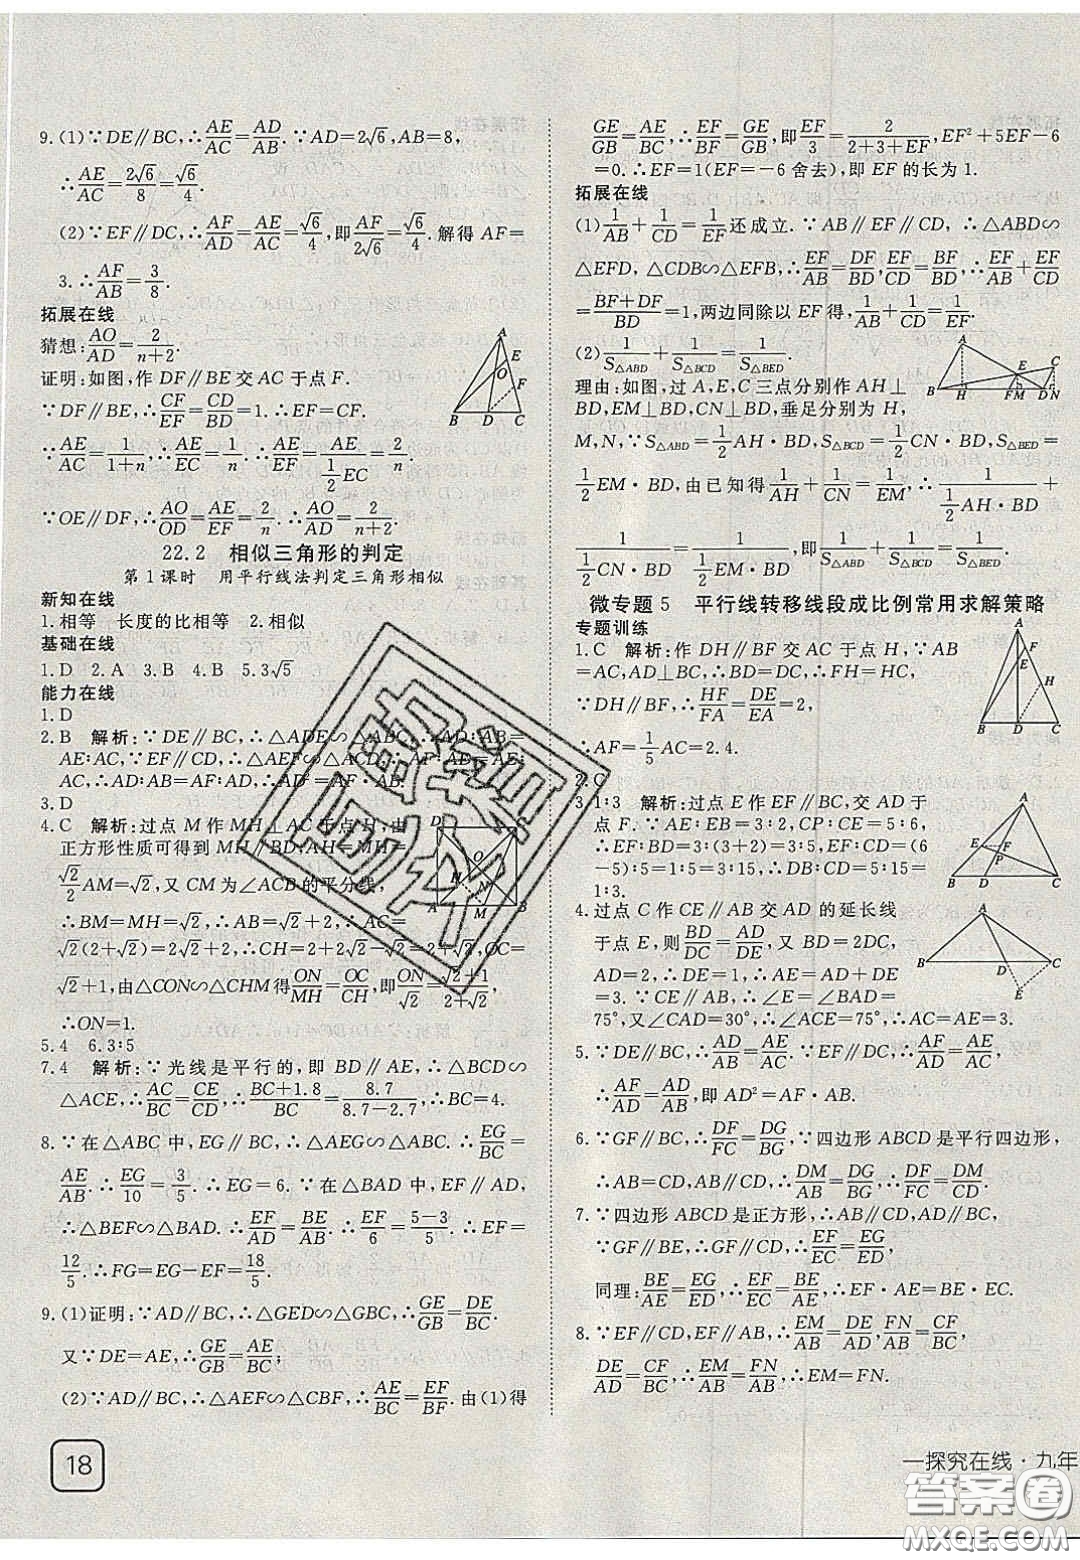 9.(1)∵DE∥BC,∴AE/AC=AD/AB. ∵AD=2√6,AB=8,
∴AE/AC=2√6/8=√6/4.
(2)∵EF∥DC,∴AF/AD=AE/AC=√6/4,即AF/2√6=√6/4.解得AF=
3.∴AF/AB=3/8.
拓展在线
猜想:AO/AD=2/(n+2).
证明:如图,作DF∥BE交AC于点F.
∵DF∥BE,∴CF/EF=CD/BD=1.∴EF=CF.
∵AE/AC=1/(1+n),∴AE/EC=1/n.∴AE/EF=AE/(1/2 EC)=2/n.
∵OE∥DF,∴AO/OD=AE/EF=2/n.∴AO/AD=2/(n+2).
A
E
O
F
B D C
22.2 相似三角形的判定
第1课时 用平行线法判定三角形相似
新知在线
1.相等 长度的比相等 2.相似
基础在线
1.D 2.A 3.B 4.B 5.3√5
能力在线
1.D
2.B 解析:∵DE∥BC,∴△ADE∽△ABC.∴AD:AB=
AE:AC,∵EF∥CD,∴△AEF∽△ACD.∴AE:AC=
AF:AD.∴AD:AB=AF:AD.∴AD²=AF·AB.
3.D
4.C 解析:过点M作MH⊥AC于点H,由
正方形性质可得到MH∥BD.AH=MH=
√2/2 AM=√2,又CM为∠ACB的平分线,
∴BM=MH=√2.∴AB=√2+2.∴AC=
√2(2+√2)=2√2+2.∴CH=2+√2,OC=
√2+1,由△CON∽△CHM得ON/MH=OC/CH,即ON/√2=(√2+1)/(2+√2),
∴ON=1.
D
O
H
N
A M B
5.4 6.3:5
7.4 解析:∵光线是平行的,即BD∥AE,∴△BCD∽
△ACE,∴AC/BC=CE/CD,∴(BC+1.8)/BC=8.7/(8.7-2.7),∴BC=4.
8.∵在△ABC中,EG∥BC,∴△AEG∽△ABC.∴EG/BC=
AE/AB.∴EG/10=3/5.∴EG=6.∵在△BAD中,EF∥AD,
∴△BEF∽△BAD.∴EF/AD=BE/AB.∴EF/6=(5-3)/5.∴EF=
12/5.∴FG=EG-EF=18/5.
9.(1)证明:∵AD∥BC,∴△GED∽△GBC,∴GE/GB=DE/BC.
又∵DE=AE,∴GE/GB=AE/BC.
(2)∵AD∥BC,∴△AEF∽△CBF,∴AE/BC=EF/BF.由(1)得
18
GE/GB=AE/BC,∴EF/BF=GE/GB,即EF/3=2/(2+3+EF),EF²+5EF-6
=0.∴EF=1(EF=-6舍去),即EF的长为1.
拓展在线
(1)1/AB+1/CD=1/EF还成立.∵AB∥EF∥CD,∴△ABD∽
△EFD,△CDB∽△EFB,∴EF/AB=DF/BD,EF/CD=BF/BD,∴EF/AB+EF/CD
=(BF+DF)/BD=1,两边同除以EF得,1/AB+1/CD=1/EF.
(2)1/S△ABD+1/S△BCD=1/S△BED.
理由:如图,过A,E,C三点分别作AH⊥
BD,EM⊥BD,CN⊥BD,垂足分别为H,
M,N,∵S△ABD=1/2 AH·BD,S△BCD=1/2 CN·BD,S△BED=
1/2 EM·BD,由已知得1/AH+1/CN=1/EM,∴1/(1/2 AH·BD)+
1/(1/2 CN·BD)=1/(1/2 EM·BD),即1/S△ABD+1/S△BCD=1/S△BED.
A
E
C
B H F M D N
微专题5 平行线转移线段成比例常用求解策略
专题训练
1.C 解析:作DH∥BF交AC于点H,∵AB
=AC,AD⊥BC,∴BD=DC,∴FH=HC.
∵DH∥BF,∴HF/FA=DE/EA=2,
∴AF=1/5 AC=2.4.
A
F
E
H
B D C
2.C
3.1:3 解析:过点E作EF∥BC,交AD于
点F.∵AE:EB=3:2,CP:CE=5:6,
∴EF:BD=AE:AB=3:5,EF:CD=(6
-5):5=1:5=3:15.∴DB:CD=5:15=
1:3.
A
E F
P
B D C
4.过点C作CE∥AB交AD的延长线
于点E,则BD/DC=AD/DE,又BD=2DC,
AD=2,∴DE=1,∴AE=AD+DE=
3.∵CE∥AB,∴∠E=∠BAD=
75°,又∠CAD=30°,∴∠ACE=75°,∴AC=AE=3.
A
B D C
E
5.∵DE∥BC,∴AD/AB=AE/AC.∵EF∥CD,∴AF/AD=AE/AC,
∴AF/AD=AD/AB,即AD²=AB·AF.
6.∵GF∥BC,∴DF/FC=DG/BG,∵四边形ABCD是平行四边形,
∴AB∥CD,AD∥BC,∴DM/AB=DG/BG,∴DF/FC=DM/CD.
7.∵四边形ABCD是正方形,∴AB∥CD,AD∥BC,
∵GF∥BE,∴GF∥AD,∴EF/EC=EG/ED,
同理:BE/AE=EG/ED,∴EF/EC=BE/AE,∴EF·AE=BE·EC.
8.∵EF∥CD,EF∥AB,∴EM/AB=DE/AD,FN/AB=CF/BC,
DE/AD=CF/BC,∴EM/AB=FN/AB,∴EM=FN.
一探究在线·九年
答案圈
MXQE.COM